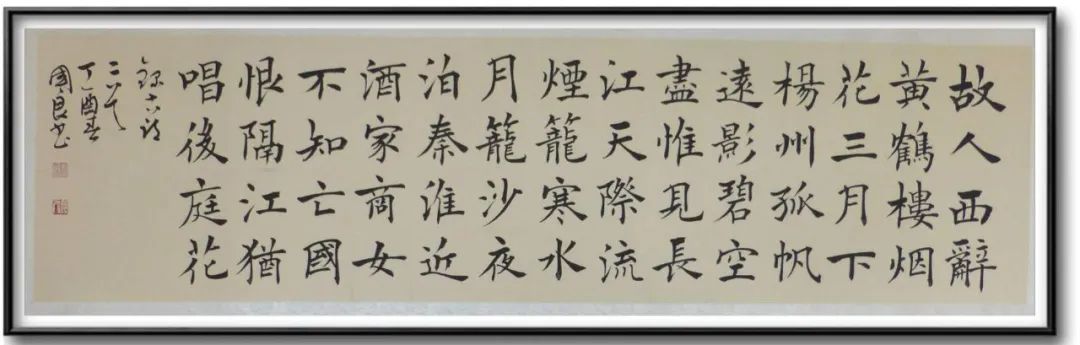 故人西辭
黃鶴樓烟
花三月下
楊州孤帆
遠影碧空
盡惟見長
江天際流
煙籠寒水
月籠沙夜
泊秦淮近
酒家商女
不知亡國
恨隔江猶
唱後庭花
丁酉春
國良书